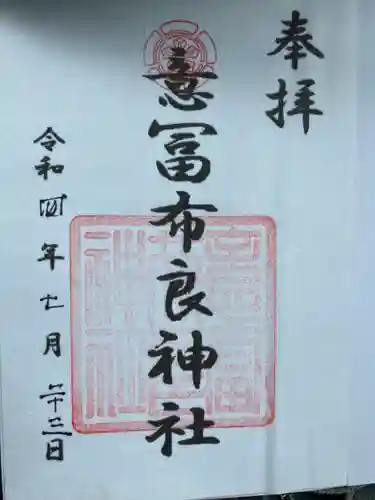 奉拝
意冨布良神社
令和四年七月二十三日